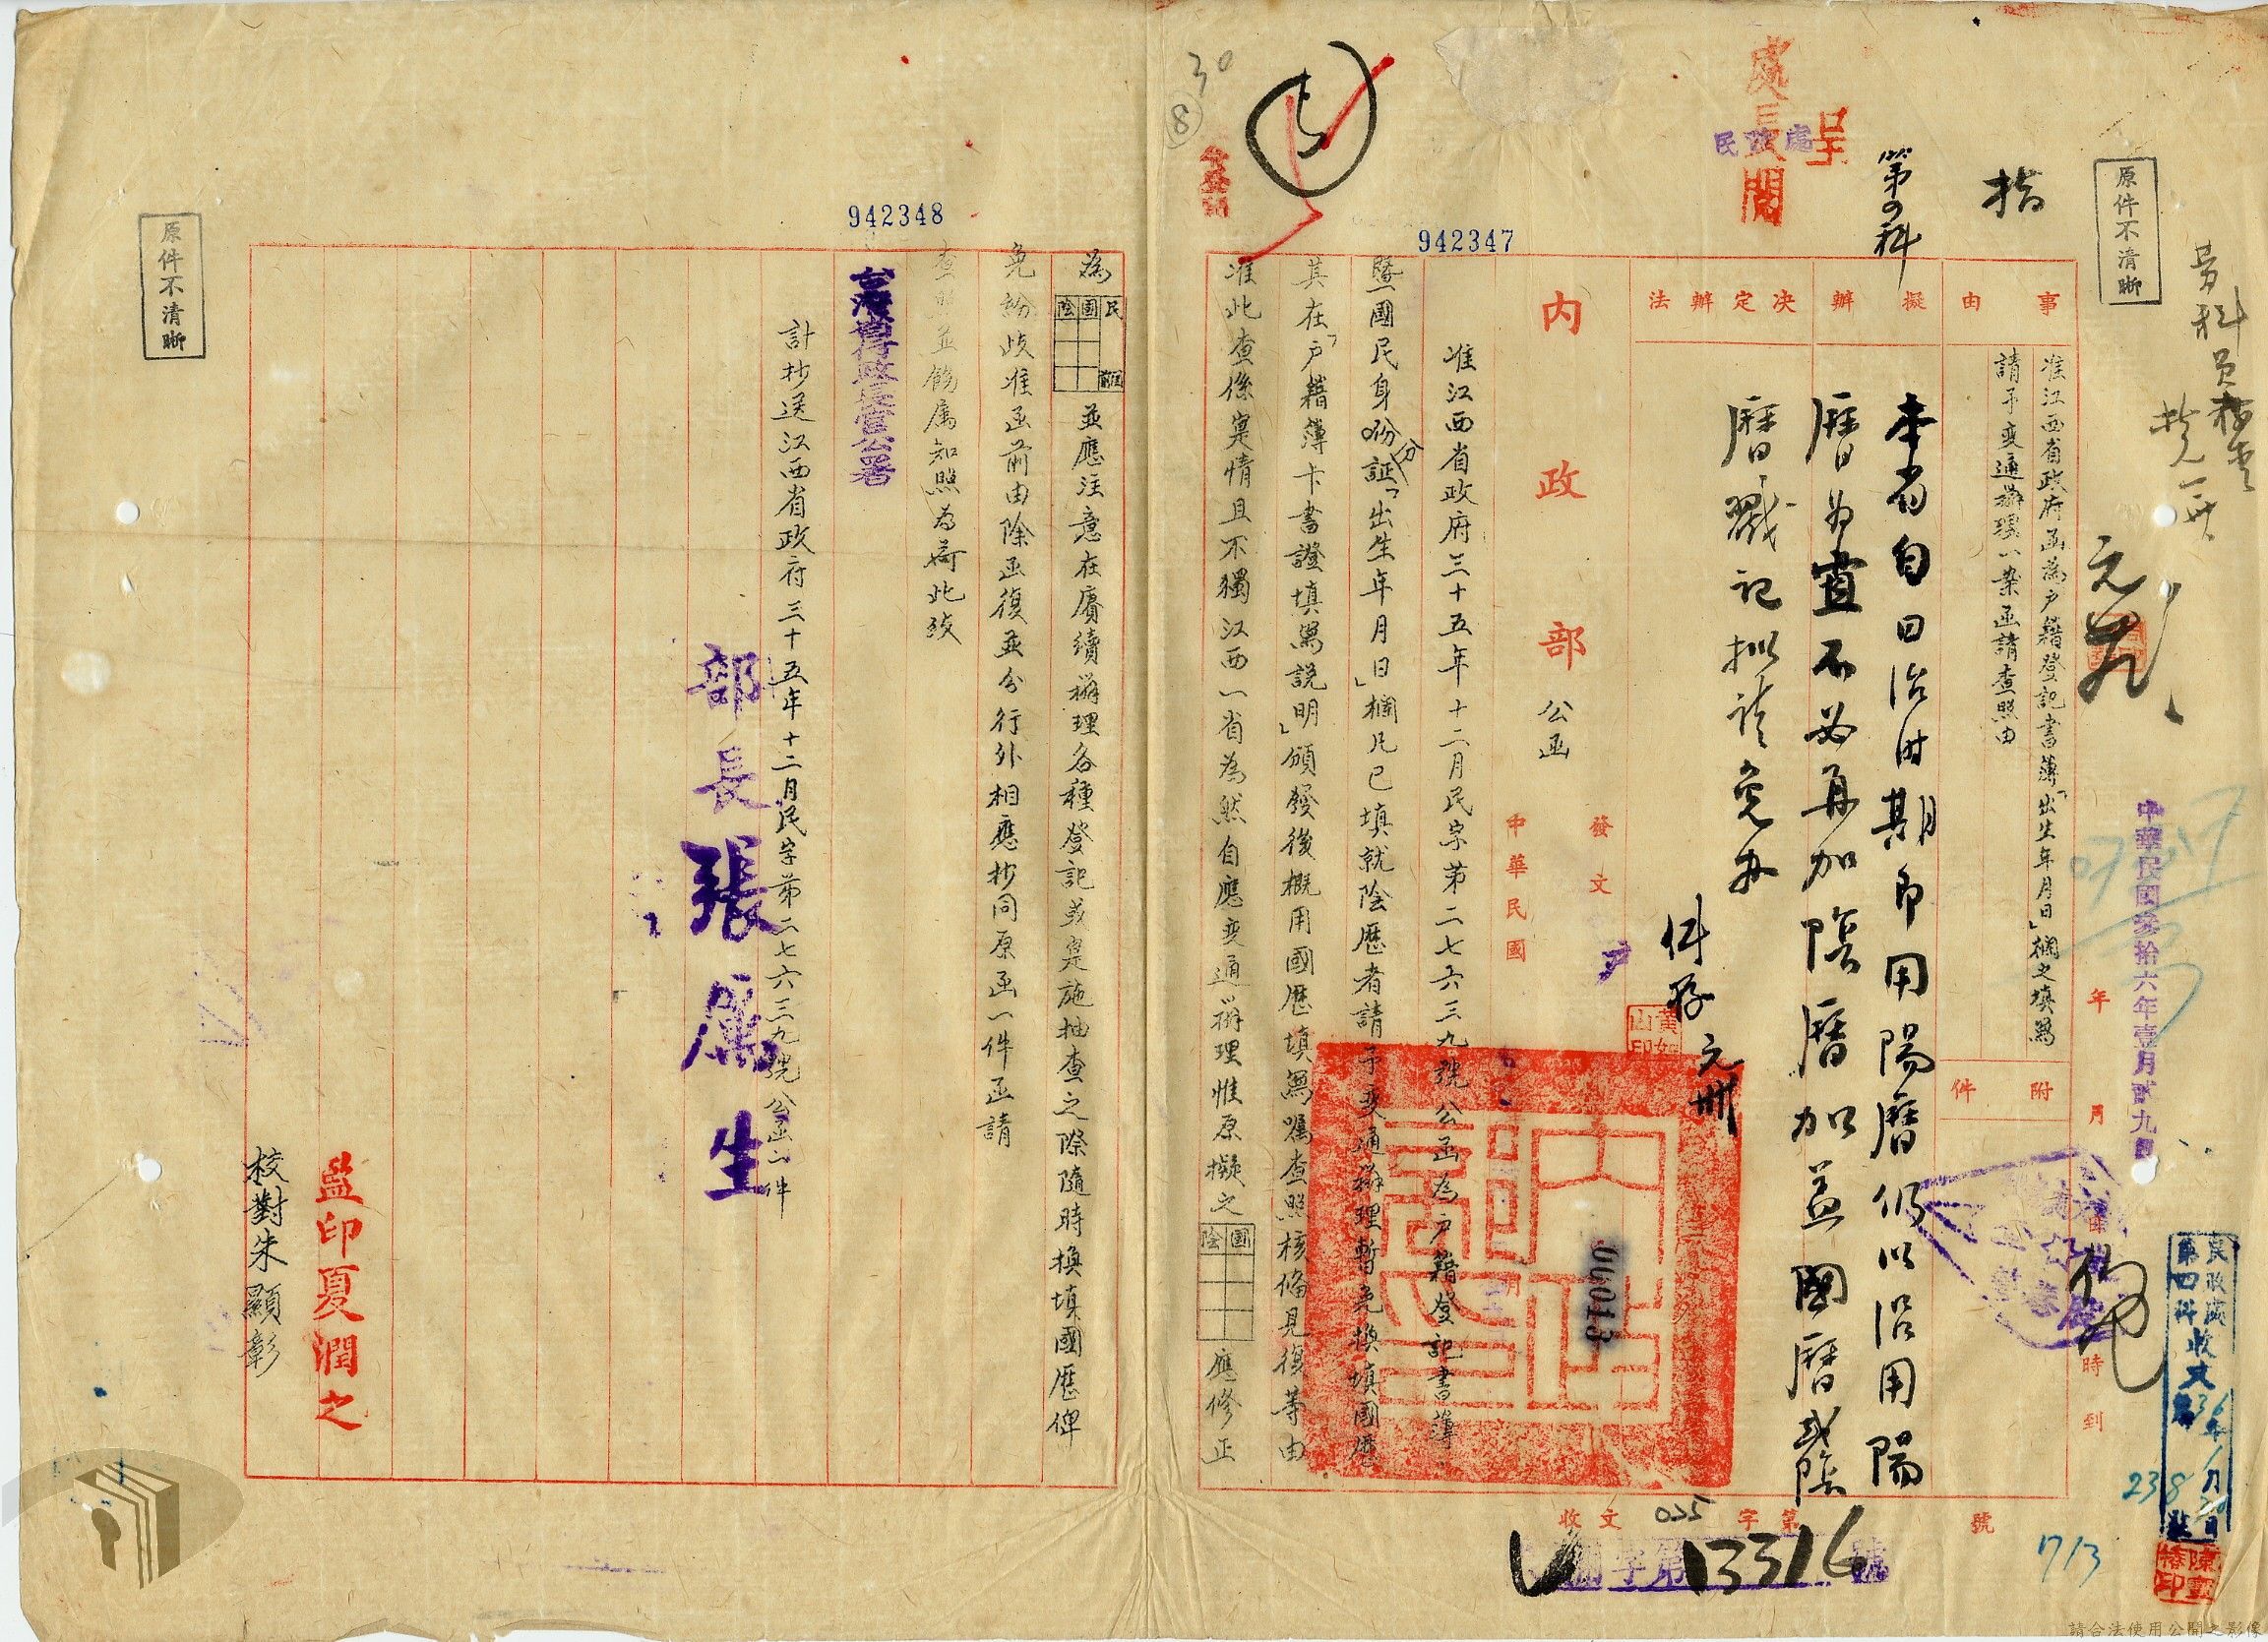 原件不清晰
勞科員
中華民國叁拾六年壹月貳九日
民政處
第四科收文
36年1月30日
238
1713
年
月
時
到
拾
第四科
呈
處長閱
民政處
事由
准江西省政府函為戶籍登記書簿「出生年月日」欄之填寫
請予變通辦理一案函請查照由
附件
擬辦
決定辦法
本省自日治時期即用陽曆仍以沿用陽
曆為宜不必再加陰曆加蓋國曆或陰
曆戳記拟請免办
件存
內政部
公函
發文
中華民國
00013
收文
字第
號
055
13316
942347
30
8
准江西省政府三十五年十二月民宗第二七六三九號公函為戶籍登記書簿
暨國民身份分証「出生年月日」欄凡已填就陰歷者請予變通辦理暫免換填國歷
其在「戶籍簿卡書證填寫說明」頒發後概用國歷填寫囑查照核備見復等由
准此查係寔情且不獨江西一省為然自應變通辦理惟原擬之
國
陰
應修正
942348
為
民國
陰
並應注意在賡續辦理各種登記或寔施抽查之際隨時換填國歷俾
免紛歧准函前由除函復並分行外相應抄同原函一件函請
查照並飭屬知照為荷此致
台灣省行政長官公署
計抄送江西省政府三十五年十二月民字第二七六三九號公函一件
部長張厲生
監印夏潤之
校對朱顯彰
原件不清晰
請合法使用公開之影像